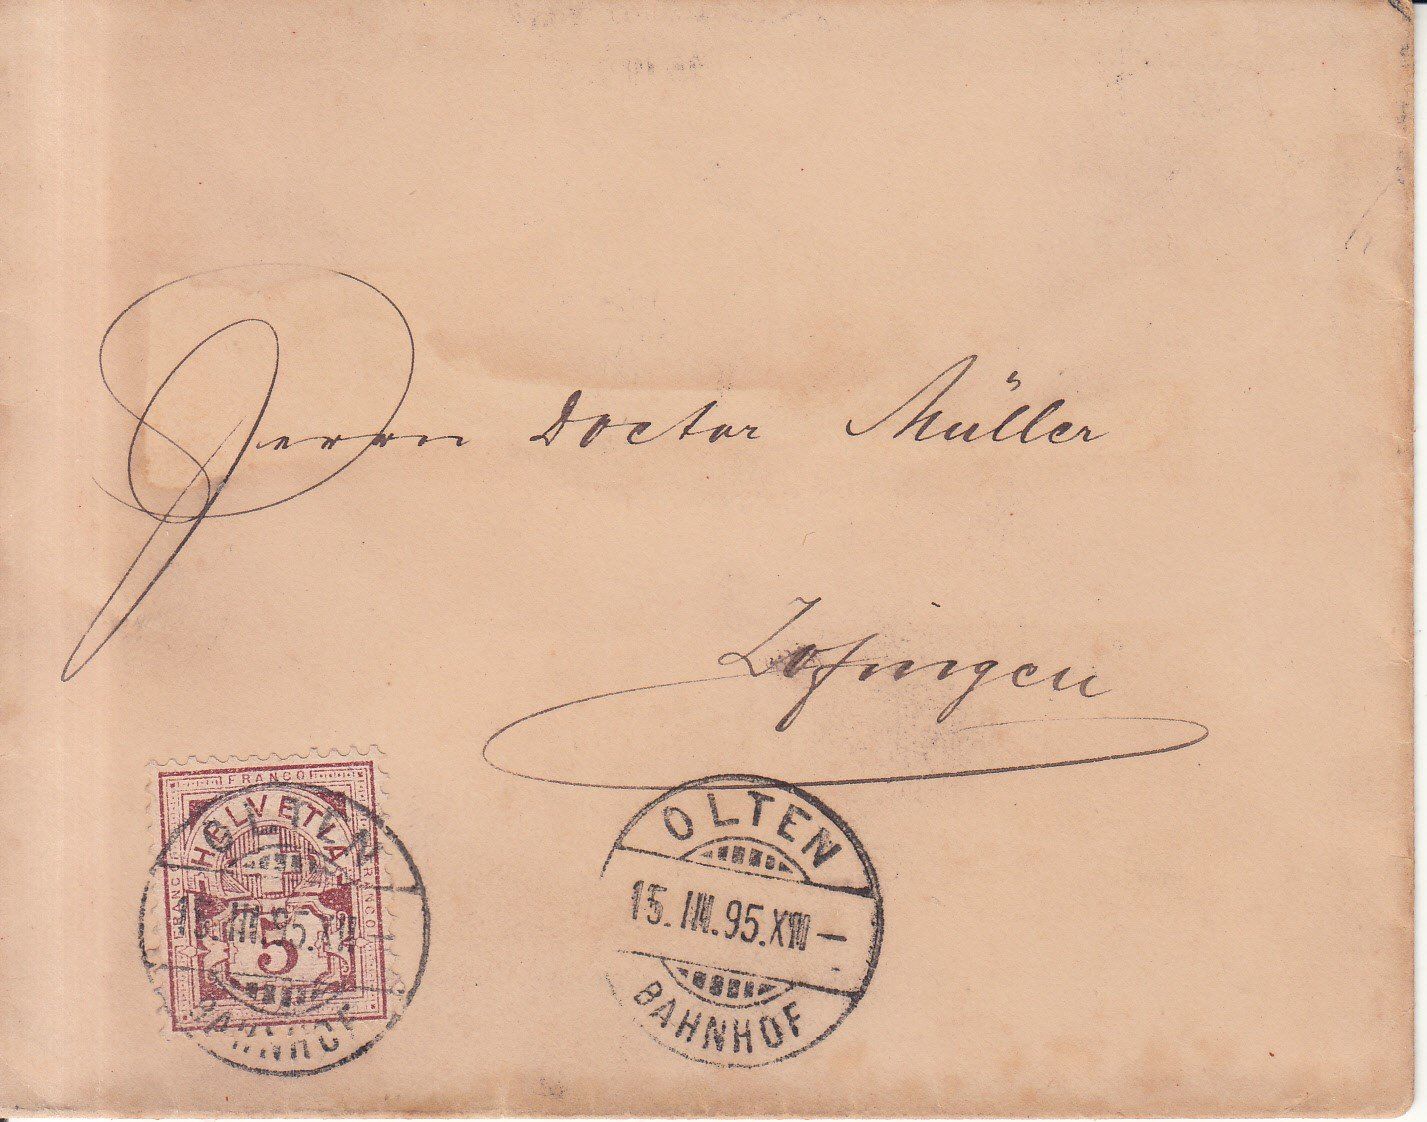 Herrn Doctor Müller
Zofingen
FRANCO
HELVETIA
FRANCO
FRANCO
5
OLTEN
15.III.95.
BAHNHOF
OLTEN
15.III.95.
BAHNHOF